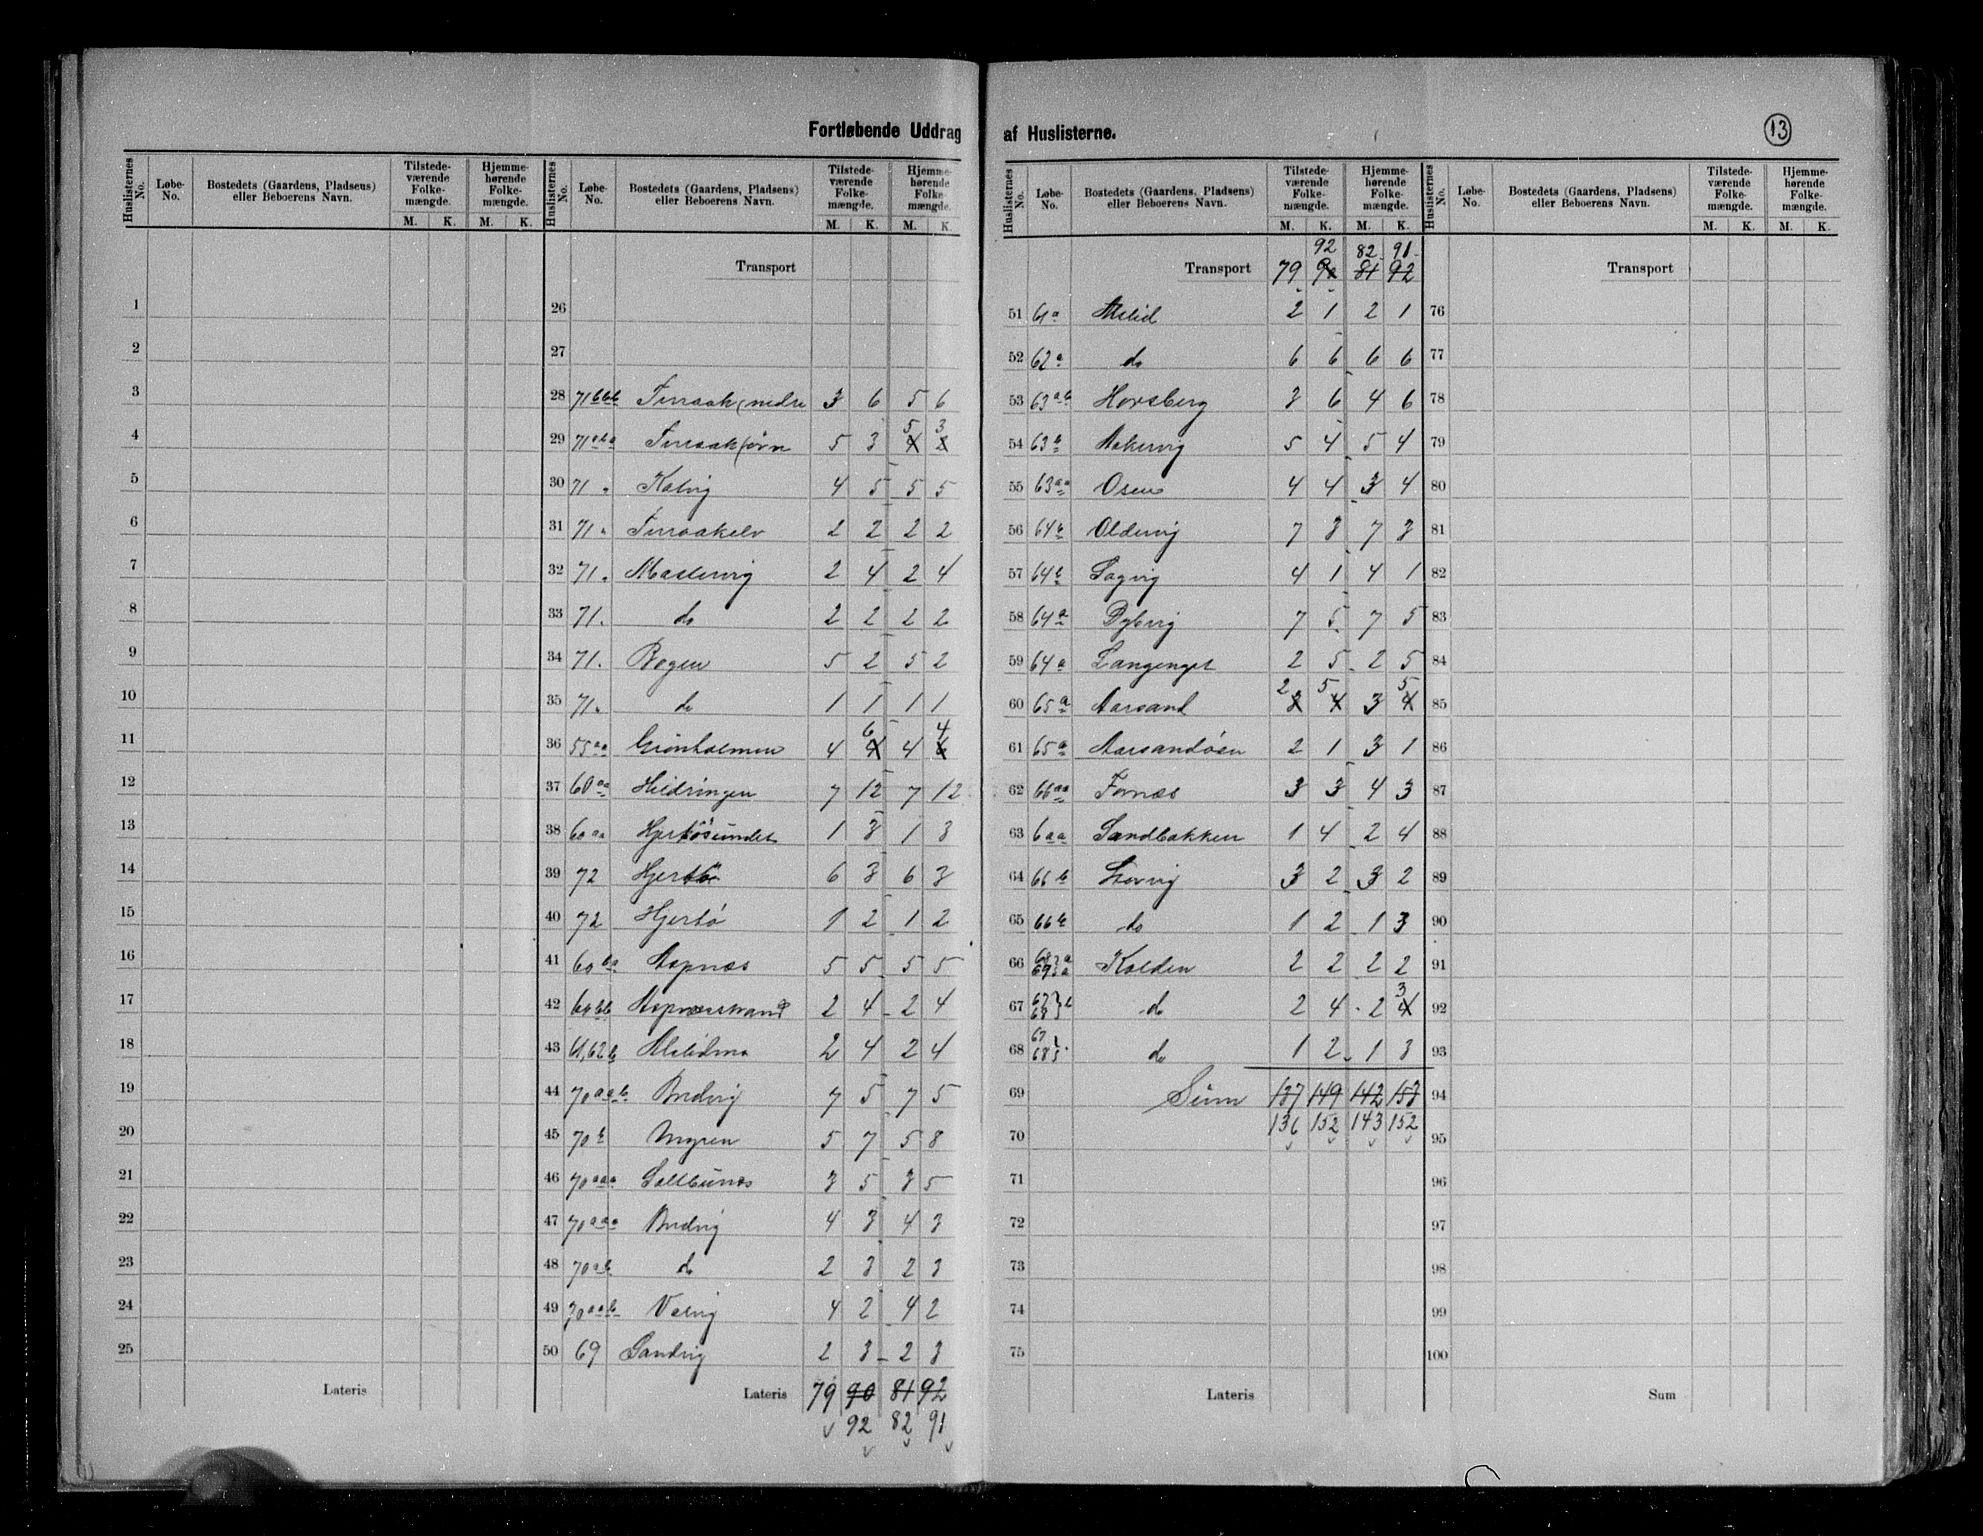 Fortløbende Uddrag af Huslisterne.
13
Huslisternes No. Løbe-No. Bostedets (Gaardens, Pladsens) eller Beboerens Navn. Tilstedeværende Folkemængde. M. K. Hjemmehørende Folkemængde. M. K.
1
2
3
4
5
6
7
8
9
10
11
12
13
14
15
16
17
18
19
20
21
22
23
24
25
Lateris
Huslisternes No. Løbe-No. Bostedets (Gaardens, Pladsens) eller Beboerens Navn. Tilstedeværende Folkemængde. M. K. Hjemmehørende Folkemængde. M. K.
Transport
26
27
28 71 bbb Terraak (nedre 3 6 5 6
29 71 aba Terraak (övre 5 3 5 3
30 71 " Kalvig 4 5 5 5
31 71 " Terraakelv 2 2 2 2
32 71 " Mastervig 2 4 2 4
33 71 " do 2 2 2 2
34 71 " Bogen 5 2 5 2
35 71 " do 1 1 1 1
36 55 aa Grönholmen 4 6 4 4
37 60 aa Heidringen 7 12 7 12
38 60 aa Hjertösundet 1 3 1 3
39 72 Hjertö 6 3 6 3
40 72 Hjertö 1 2 1 2
41 60 ba Aspnæs 5 5 5 5
42 60 bb Aspnæsstrand 2 4 2 4
43 61,62 b 2 4 2 4
44 70 aab Bredvig 7 5 7 5
45 70 b Myren 5 7 5 8
46 70 aaa 3 5 3 5
47 70 aaa Bredvig 4 3 4 3
48 70 ab do 2 3 2 3
49 70 aab Valvig 4 2 4 2
50 69 Sandvig 2 3 2 3
Lateris 79 90 81 92
92 82 91
Huslisternes No. Løbe-No. Bostedets (Gaardens, Pladsens) eller Beboerens Navn. Tilstedeværende Folkemængde. M. K. Hjemmehørende Folkemængde. M. K.
92 82 91
Transport 79 90 81 92
51 61 a Aslid 2 1 2 1
52 62 a do 6 6 6 6
53 63 ab Horsberg 3 6 4 6
54 63 b Aakervig 5 4 5 4
55 63 aa Osen 4 4 3 4
56 64 b Oldervig 7 3 7 3
57 64 b Sagvig 4 1 4 1
58 64 a Dybvig 7 5 7 5
59 64 a Langenget 2 5 2 5
60 65 a Aarsand 2 5 3 5
61 65 a Aarsandösen 2 1 3 1
62 66 aa Fornæs 3 3 4 3
63 6 aa Sandbakken 1 4 2 4
64 66 b 3 2 3 2
65 66 b do 1 2 1 3
66 Kalden 2 2 2 2
67 67 68 } b do 2 4 2 3
68 67 68 } do 1 2 1 3
69 Sum 137 149 142 153
70 136 152 143 152
71
72
73
74
75
Lateris
Huslisternes No. Løbe-No. Bostedets (Gaardens, Pladsens) eller Beboerens Navn. Tilstedeværende Folkemængde. M. K. Hjemmehørende Folkemængde. M. K.
Transport
76
77
78
79
80
81
82
83
84
85
86
87
88
89
90
91
92
93
94
95
96
97
98
99
100
Sum